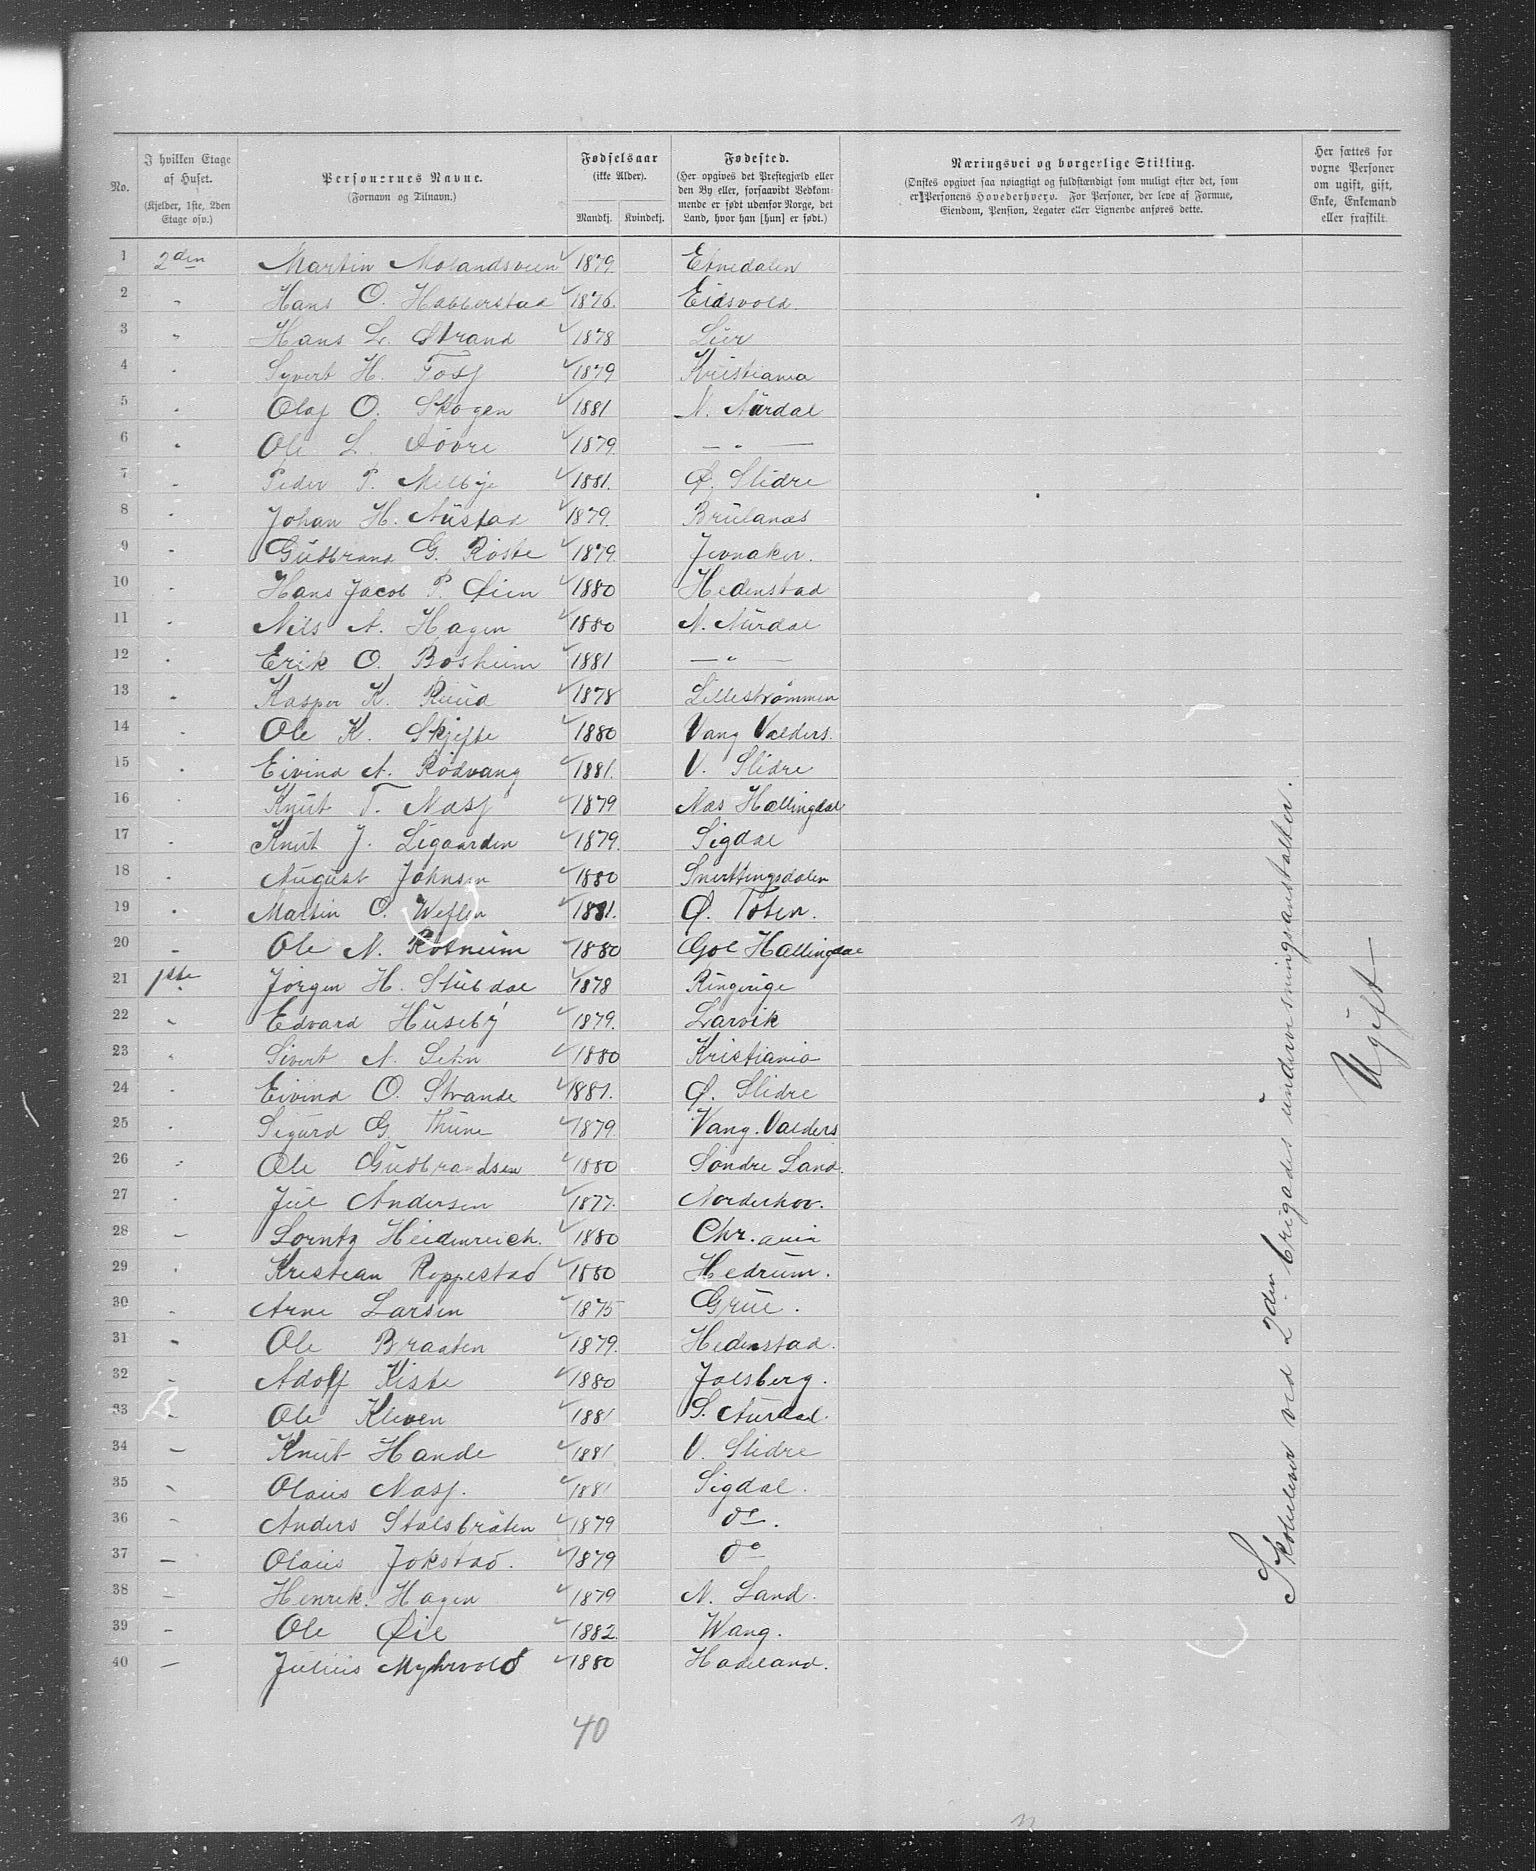 No.
I hvilken Etage af Huset. (Kjelder, 1ste, 2den Etage osv.)
Personernes Navne. (Fornavn og Tilnavn.)
Fødselsaar (ikke Alder).
Mandkj. Kvindekj.
Fødested. (Her opgives det Prestegjæld eller den By eller, forsaavidt Vedkommende er født udenfor Norge, det Land, hvor han [hun] er født.)
Næringsvei og borgerlige Stilling. (Ønskes opgivet saa nøiagtigt og fuldstændigt som muligt efter det, som er Personens Hovederhverv. For Personer, der leve af Formue, Eiendom, Pension, Legater eller Lignende anføres dette.
Her sættes for voxne Personer om ugift, gift, Enke, Enkemand eller fraskilt.
1 2den Martin Molandsveen 1879 Etnedalen
2 " Hans O. Habberstad 1876. Eidsvold.
3 " Hans L. Strand 1878 Lier
4 " Syvert H. Fosf 1879 Kristiania
5 " Olaf O. Skogen 1881 N. Aurdal
6 " Ole L. Døvre 1879 — " —
7 " Peder P. Melbye 1881. Ø. Slidre
8 " Johan H. Austad 1879. Bruflanas
9 " Gudbrand G. Røste 1879. Jevnaker.
10 " Hans Jacob P. Øien 1880 Hedenstad
11 " Nils A. Hagen 1880 N. Aurdal
12 " Erik O. Bosheim 1881 — " —
13 " Kasper K. Ruud 1878 Lillestrømmen
14 " Ole K. Skjefte 1880 Vang Valders.
15 " Eivind A. Rødvang 1881. V. Slidre
16 " Knut T. Nasf 1879 Nas Hallingdal
17 " Knut J. Ligaarden 1879. Sigdal
18 " August Johnsen 1880 Snertingsdalen
19 " Martin O. Weflen 1881. Ø. Toten.
20 " Ole N. Rotneim 1880 Gol Hallingdal
21 1ste Jørgen H. Stubdal 1878 Ringerige
22 " Edvard Huseby 1879. Larvik
23 " Sivert N. Sehn 1880 Kristiania
24 " Eivind O. Strande 1881. Ø. Slidre
25 " Sigurd G. Thune 1879. Vang. Valders
26 " Ole Gudbrandsen 1880 Søndre Land.
27 " Juel Andersen 1877. Norderhov.
28 " Lorntz Heidenreich. 1880 Chr.ania
29 " Kristian Roppestad 1880 Hedrum.
30 " Arne Larsen 1875 Grue.
31 " Ole Braaten 1879. Hedenstad.
32 " Adolf Kiste 1880 Jalsberg.
33 " Ole Kleven 1881 S. Aurdal.
34 " Knut Hande 1881 V. Slidre
35 " Olaus Nasf. 1881 Sigdal.
36 " Anders Stalsbråten 1879 do.
37 " Olaus Jokstad. 1879 do
38 " Henrik. Hagen 1879 N. Land.
39 " Ole Øie 1882. Wang.
40 " Julius Myhrvold 1880 Hadeland.
Skoleelever ved 2den brigades underoffisersanstalten.
Ugift —
40